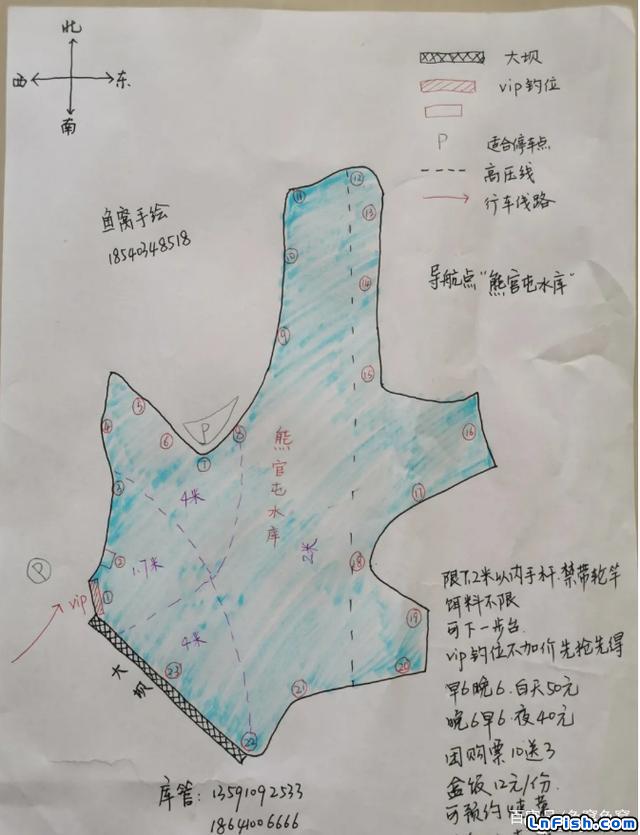 北
西 东
南
大坝
vip钓位
P 适合停车点
高压线
行车线路
鱼窝手绘
18540348518
导航点"熊官屯水库"
⑪
⑫
⑬
⑩
⑭
⑨
⑮
⑤
④
⑥
P
⑧
⑦
⑯
熊官屯水库
③
4米
⑰
2米
1.7米
②
⑱
P
vip
①
⑲
4米
大坝
㉓
⑳
㉑
㉒
限7.2米以内手杆.禁带轮竿
饵料不限
可下一步台.
vip钓位不加价先抢先得
早6晚6.白天50元
晚6早6.夜40元
团购票10送3
盒饭12元/份.
可预约
库管: 13591092533
18641006666
LnFish.com